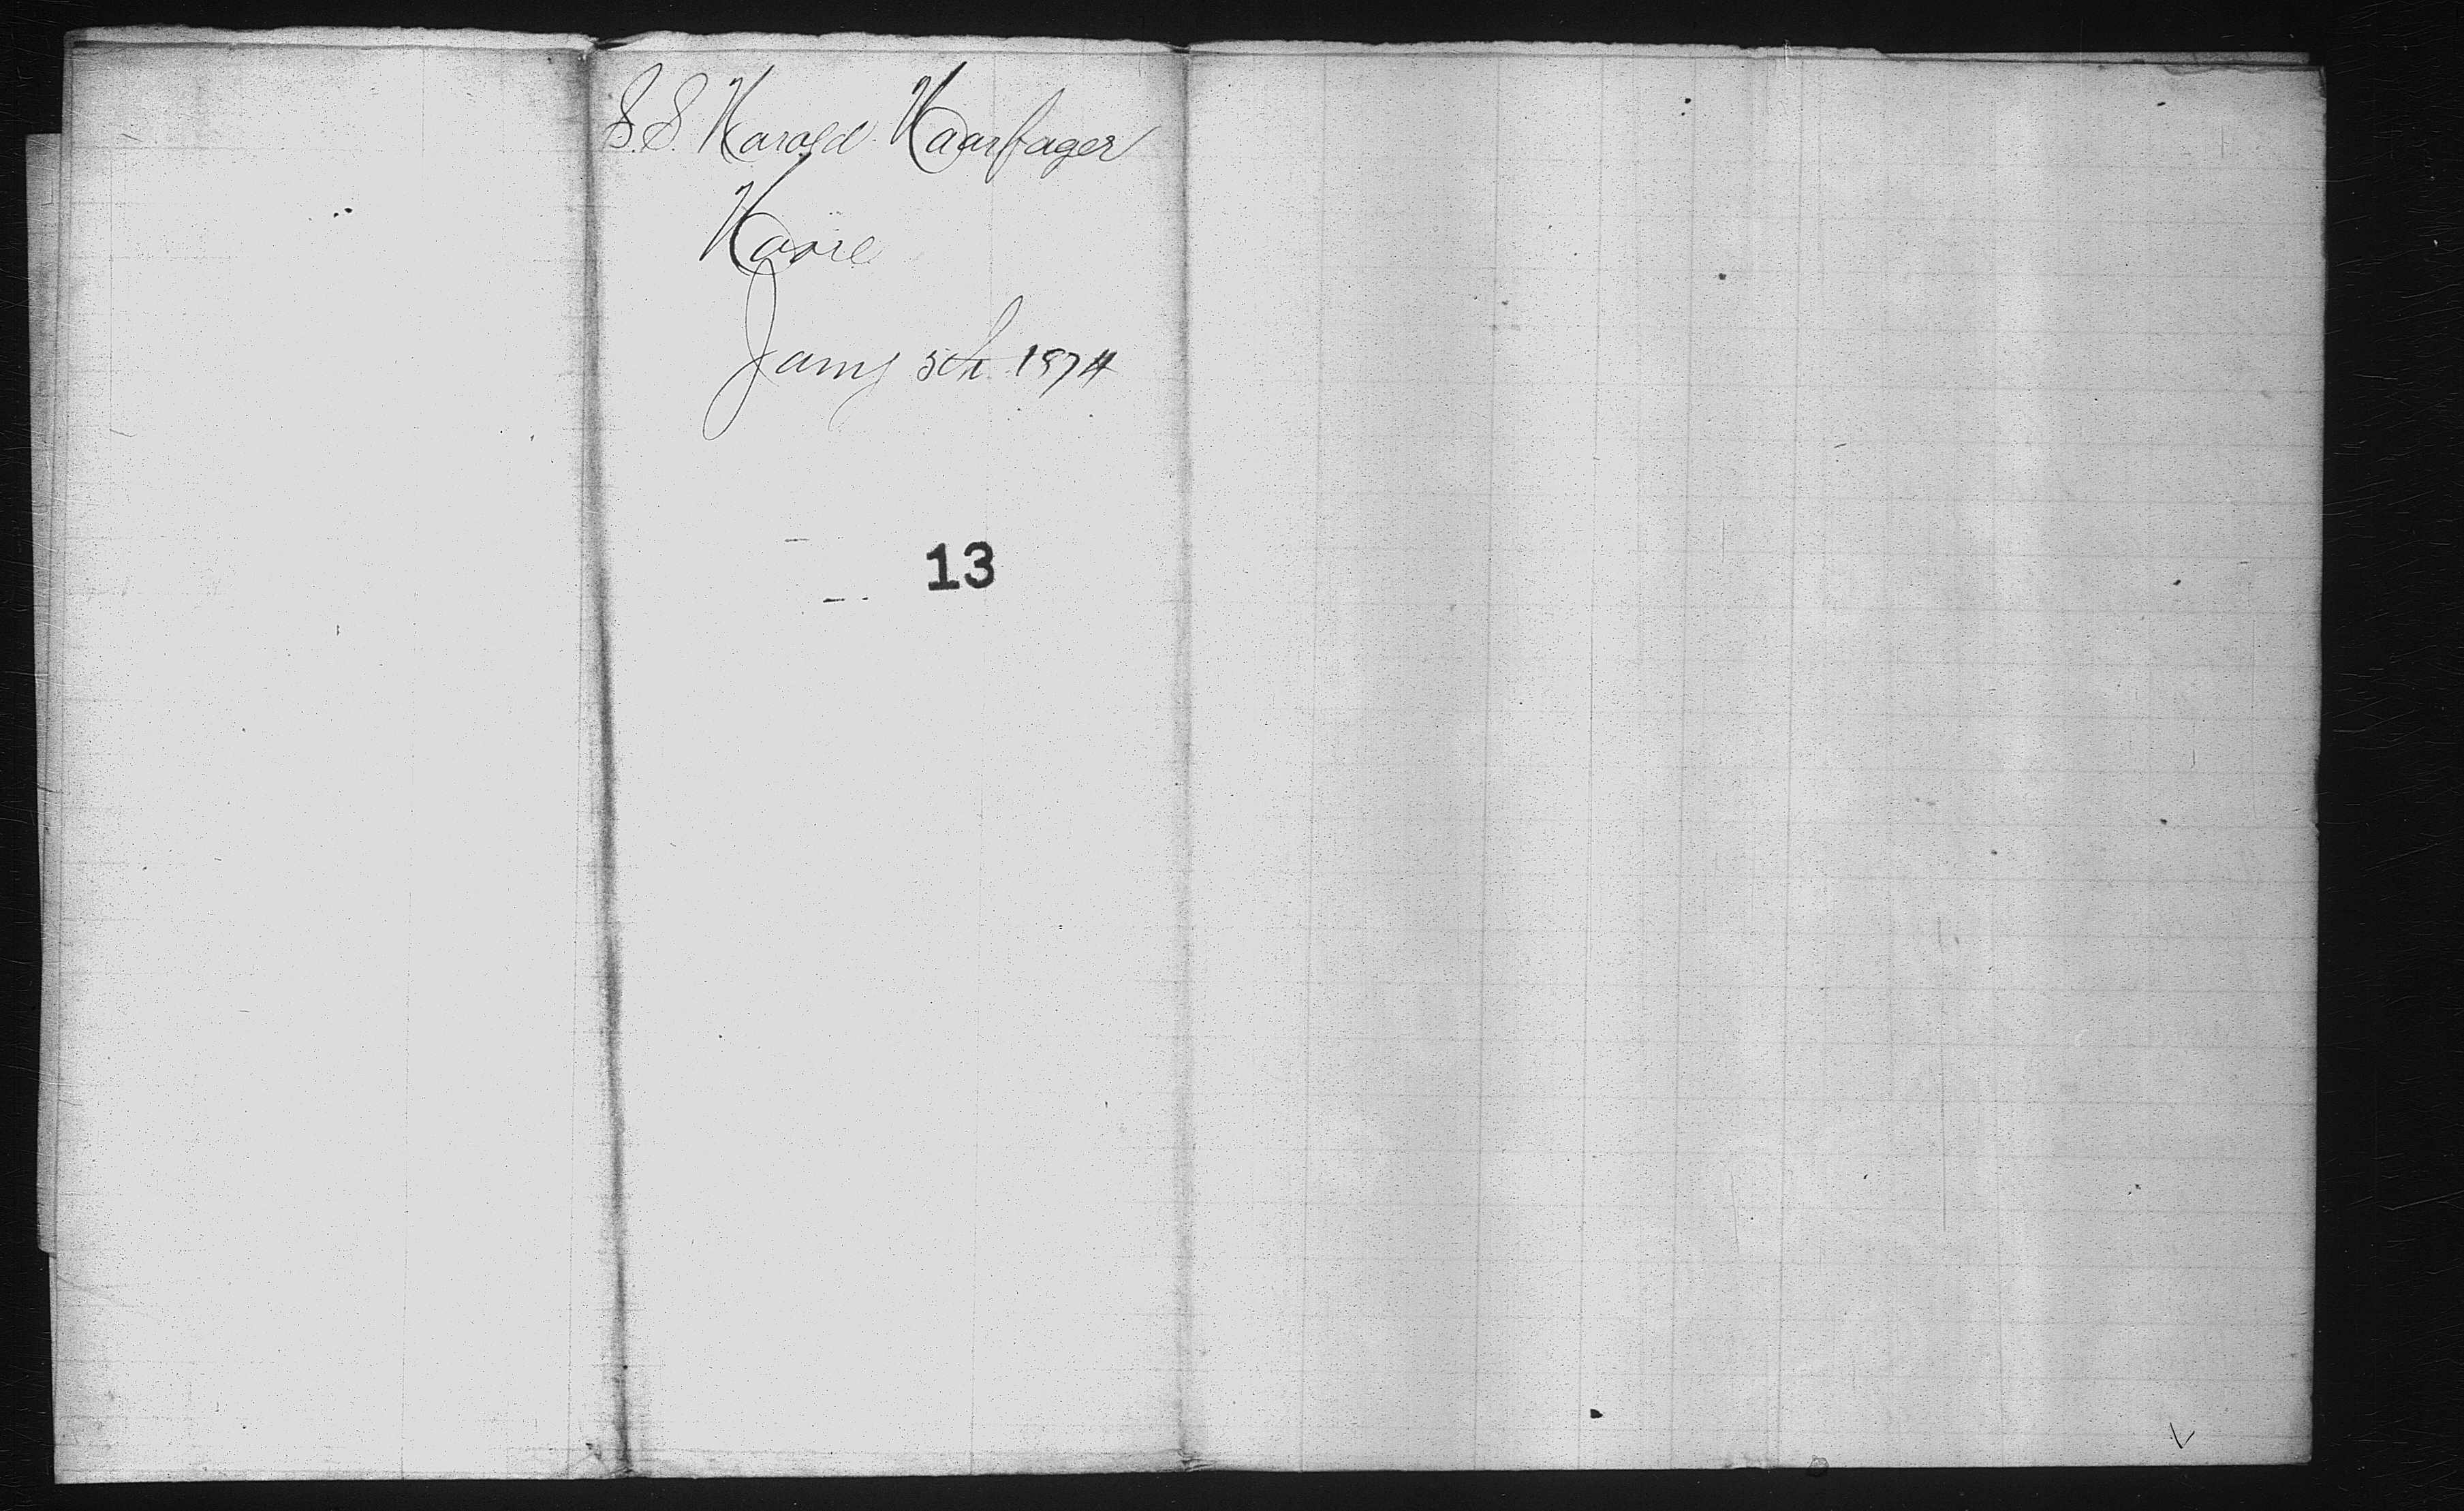 S.S. Harald Haarfager
Havre
Jany 5th 1874
13